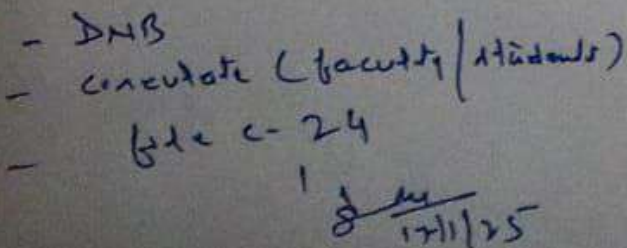 - DNB
- circulate (faculty/students)
- file c-24
17/1/25